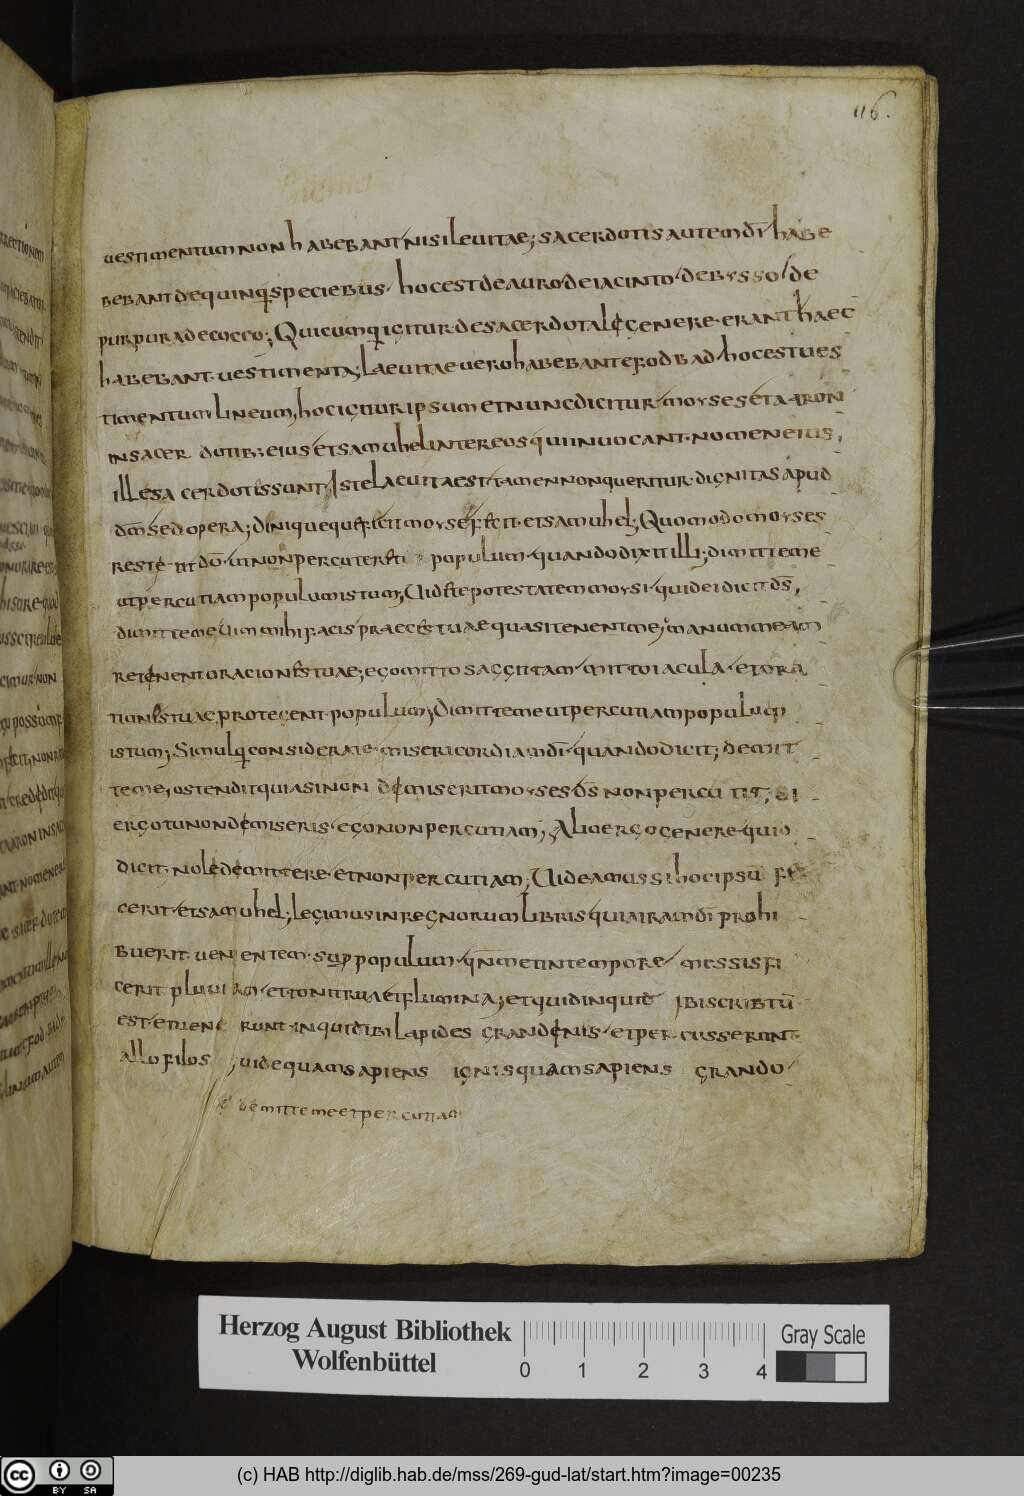 116.
uestimentum non habebant nisi leuitae; sacerdotis autem dī habe
bebant de quinq; speciebus hoc est de auro de iacinto de bysso de
purpura de cocco; Quicumq; igitur de sacerdotali genere erant haec
habebant uestimenta; laeuitae uero habebant efod bad hoc est ues
timentum lineum, hoc igitur ipsum et nunc dicitur moyses et aaron
in sacerdotib; eius et samuhel inter eos qui inuocant nomen eius,
illi sacerdotis sunt, Iste laeuita est tamen non queritur dignitas apud
dm̄ sed opera; Dinique que fecit moyse fecit et samuhel; Quomodo moyses
dō ut non percuteret populum quando dixit illi; dimitte me
ut percutiam populum istum; Uidete potestatem moysi quid ei dicit ds̄,
dimitte me uim mihi facis praeces tuae quasi tenent me, manum meam
retenent oracionis tuae; ego mitto saggittam mitto iacula et ora
tionis tuae protegent populum; Dimitte me ut percutiam populum
istum; Simulq; considerate misericordiam dī quando dicit; demit
te me, ostendit quia si non demiserit moyses ds̄ non percutit; Si
ergo tu non demiseris ego non percutiam; Alio ergo genere quid
dicit, nole demittere et non percutiam; Uideamus si hoc ipsū fe
cerit et samuhel; legimus in regnorum libris quia iram dī prohi
buerit uenientem sup populum qn̄ metin tempore messis fi
cerit pluuiam et tonitrua et flumina; et quid inquid Ibi scribtū
est et uenerunt inquid ibi lapides grandenis et percusserunt
allofilos uide quam sapiens ignis quam sapiens grando
demitte me et percutiam
Herzog August Bibliothek
Wolfenbüttel
0 1 2 3 4
Gray Scale
cc BY SA
(c) HAB http://diglib.hab.de/mss/269-gud-lat/start.htm?image=00235